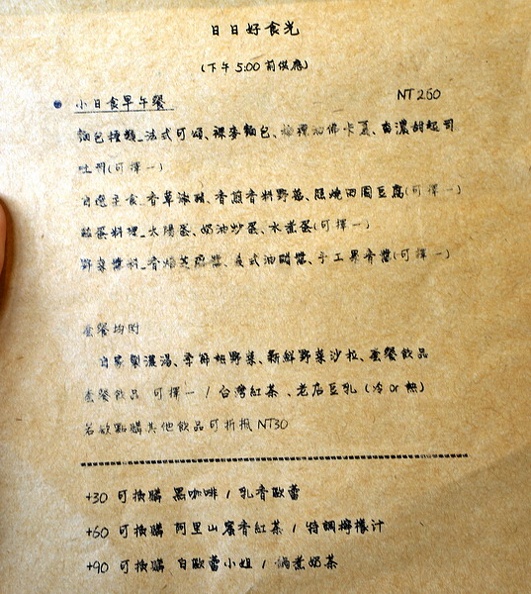 日日好食光
(下午 5:00 前供應)
小日食早午餐 NT 260
麵包種類_法式可頌、裸麥麵包、佛卡夏、香濃甜起司
吐司(可擇一)
自選主食_香草、香煎香料野菇、照燒田園豆腐(可擇一)
蛋料理_太陽蛋、奶油炒蛋、水煮蛋(可擇一)
野菜醬料_香焙芝麻醬、義式油醋醬、手工果香醬(可擇一)
套餐均附
自家製濃湯、季節姐野菜、新鮮野菜沙拉、套餐飲品
套餐飲品 可擇一 / 台灣紅茶、老店豆乳 (冷 or 熱)
若欲點購其他飲品可折抵 NT30
+30 可換購 黑咖啡 / 乳香歐蕾
+60 可換購 阿里山蜜香紅茶 / 特調檸檬汁
+90 可換購 白歐蕾小姐 / 鍋煮奶茶